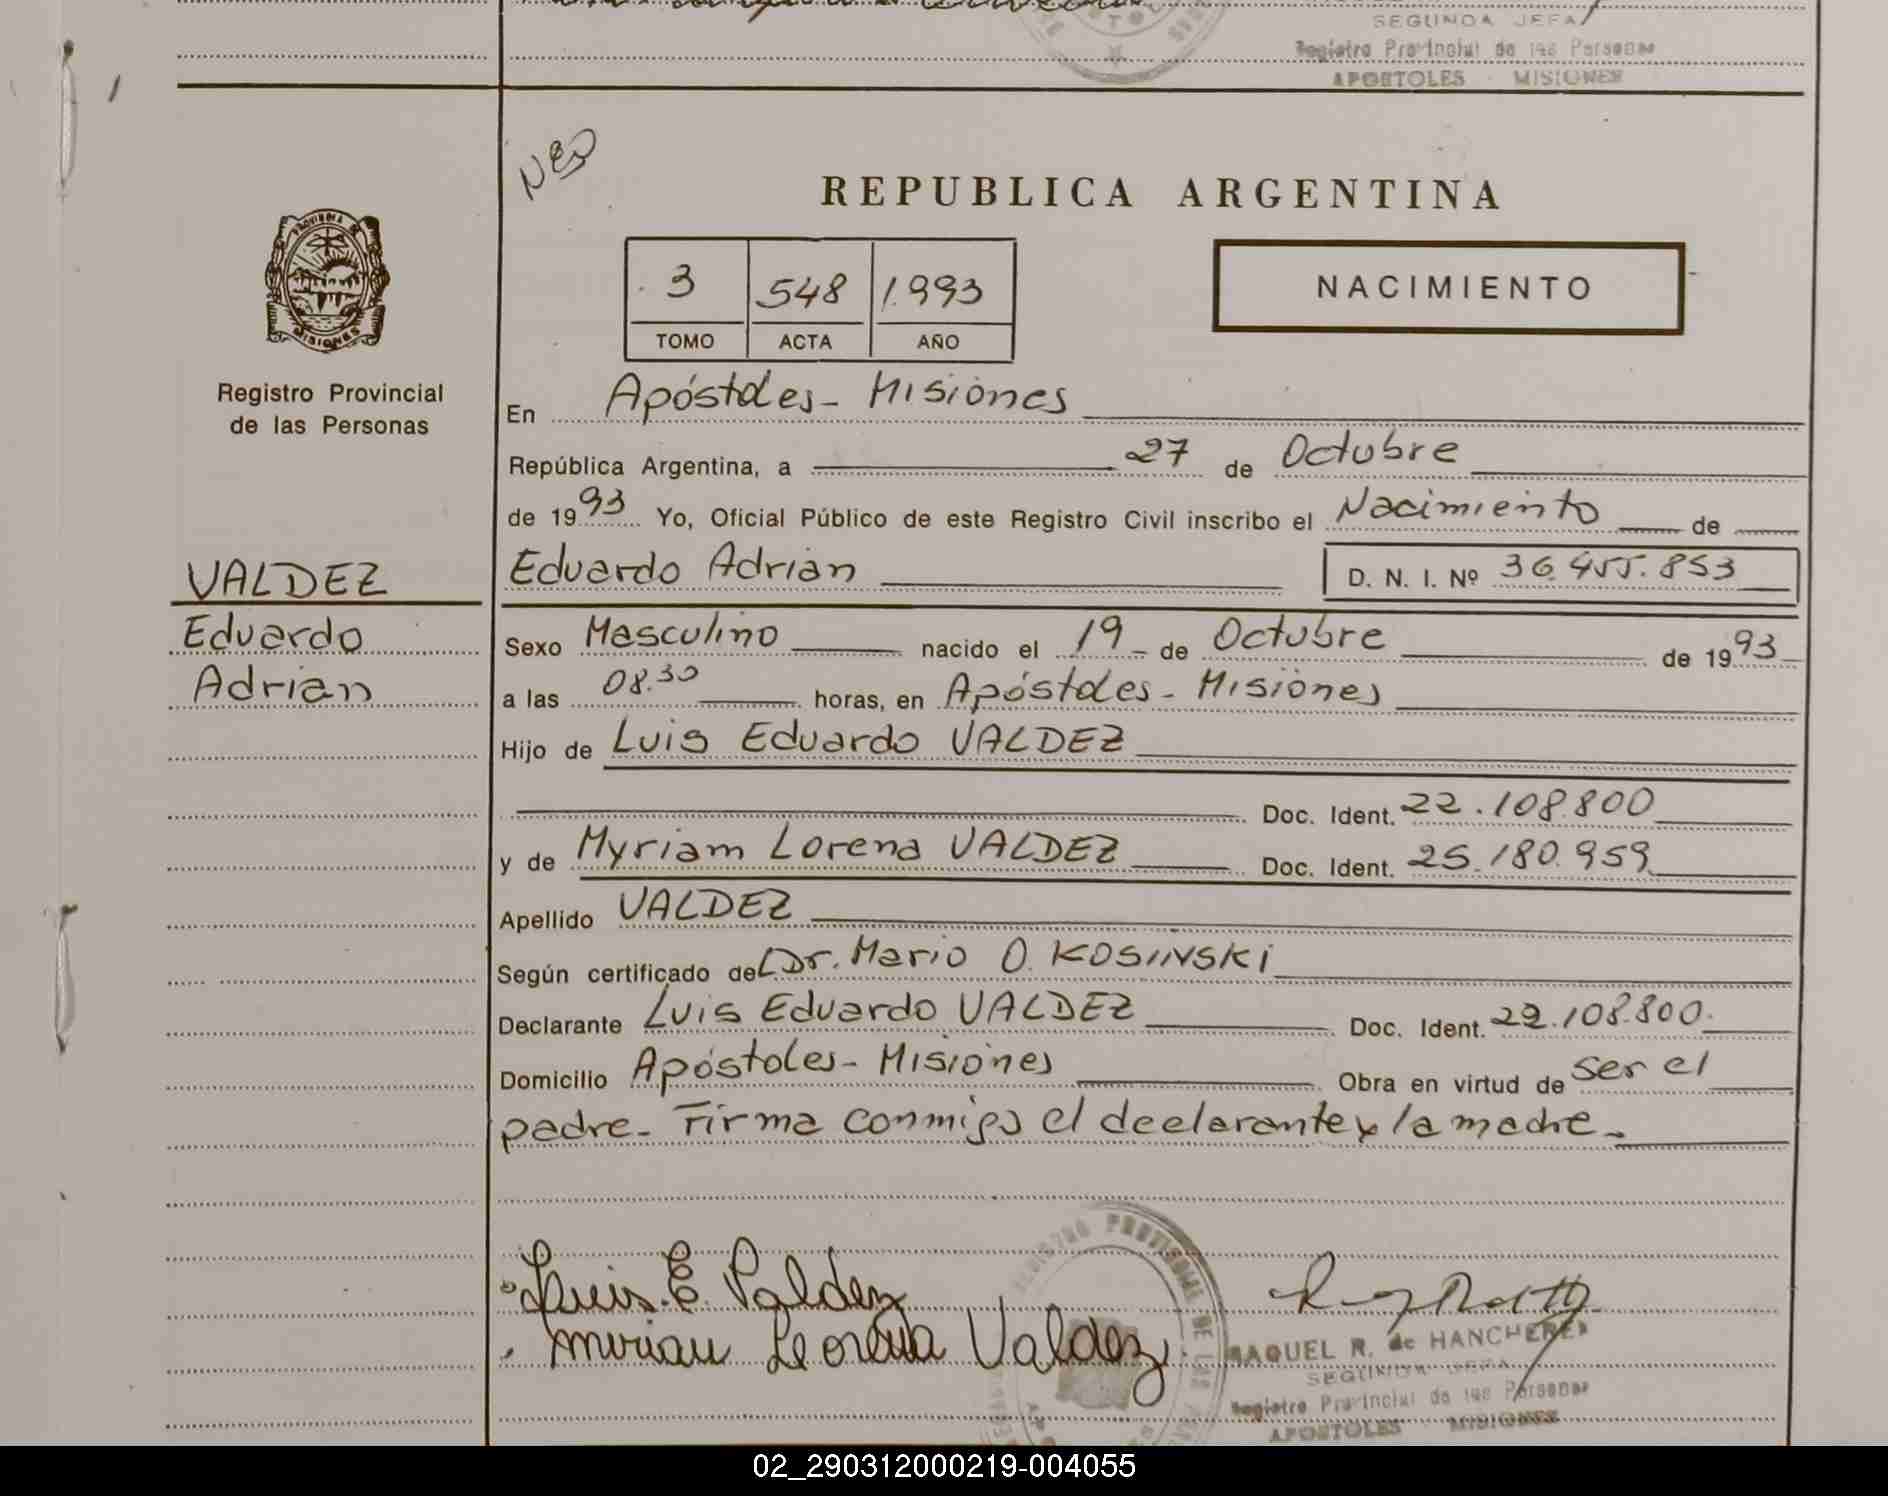 SEGUNDA JEFA
Registro Provincial de las Personas
APOSTOLES - MISIONES
REPUBLICA ARGENTINA
PROVINCIA DE
MISIONES
3 548 1.993
TOMO ACTA AÑO
NACIMIENTO
Registro Provincial
de las Personas
En Apóstoles - Misiones
República Argentina, a 27 de Octubre
de 1993 Yo, Oficial Público de este Registro Civil inscribo el Nacimiento de
Eduardo Adrián D. N. I. Nº 36.455.853
VALDEZ
Eduardo
Adrián
Sexo Masculino nacido el 19 de Octubre de 1993
a las 08.30 horas, en Apóstoles - Misiones
Hijo de Luis Eduardo VALDEZ
Doc. Ident. 22.108.800
y de Myriam Lorena VALDEZ Doc. Ident. 25.180.959
Apellido VALDEZ
Según certificado de Dr. Mario O. KOSINSKI
Declarante Luis Eduardo VALDEZ Doc. Ident. 22.108.800.
Domicilio Apóstoles - Misiones Obra en virtud de ser el
padre - Firma conmigo el declarante y la madre -
Luis. E. Valdez
Mirian Leorena Valdez
REGISTRO PROVINCIAL DE LAS
RAQUEL R. de HANCHEREK
SEGUNDA JEFA
Registro Provincial de las Personas
APOSTOLES - MISIONES
02_290312000219-004055